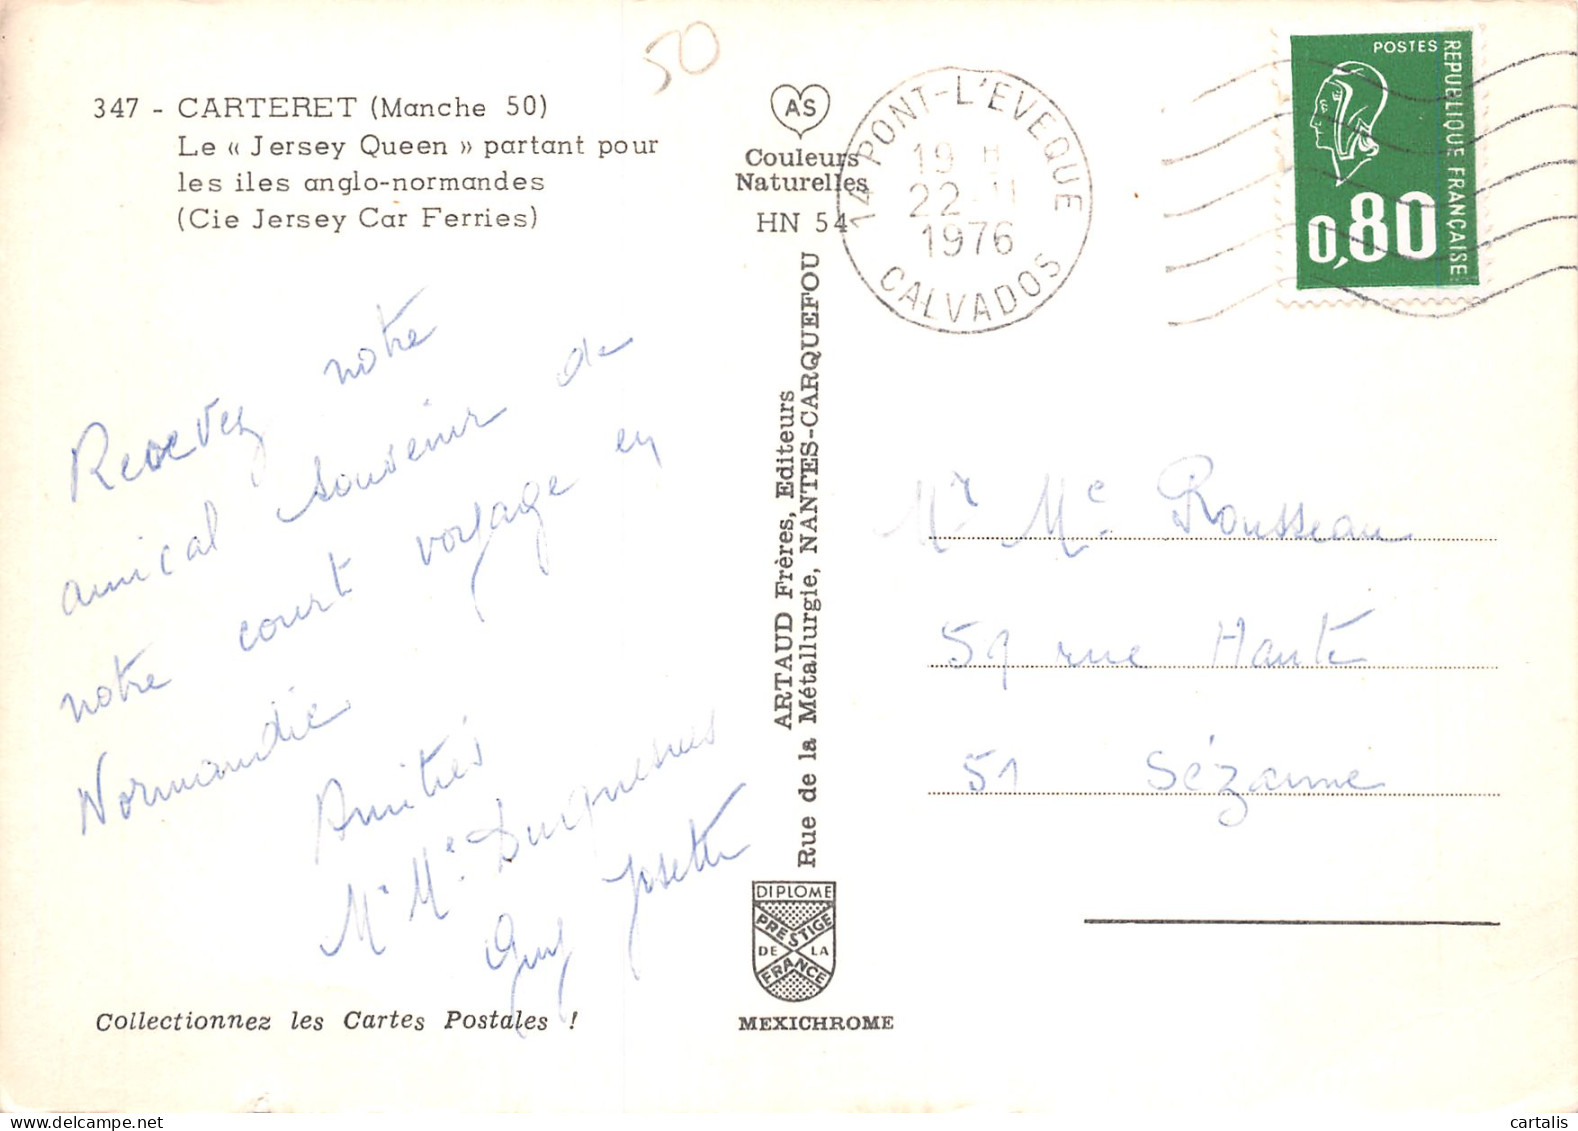 50
347 - CARTERET (Manche 50)
Le « Jersey Queen » partant pour
les iles anglo-normandes
(Cie Jersey Car Ferries)
AS
Couleurs
Naturelles
HN 54
14 PONT-L'EVEQUE
19 H
22 - 11
1976
CALVADOS
POSTES
REPUBLIQUE FRANÇAISE
0,80
Recevez notre
amical souvenir de
notre court voyage en
Normandie
Amitiés
Mr Me Duquesnes
Guy Josette
Collectionnez les Cartes Postales !
ARTAUD Frères, Editeurs
Rue de la Métallurgie, NANTES-CARQUEFOU
DIPLOME
PRESTIGE
DE LA
FRANCE
MEXICHROME
Mr Me Rousseau
59 rue Haute
51 Sézanne
cartalis